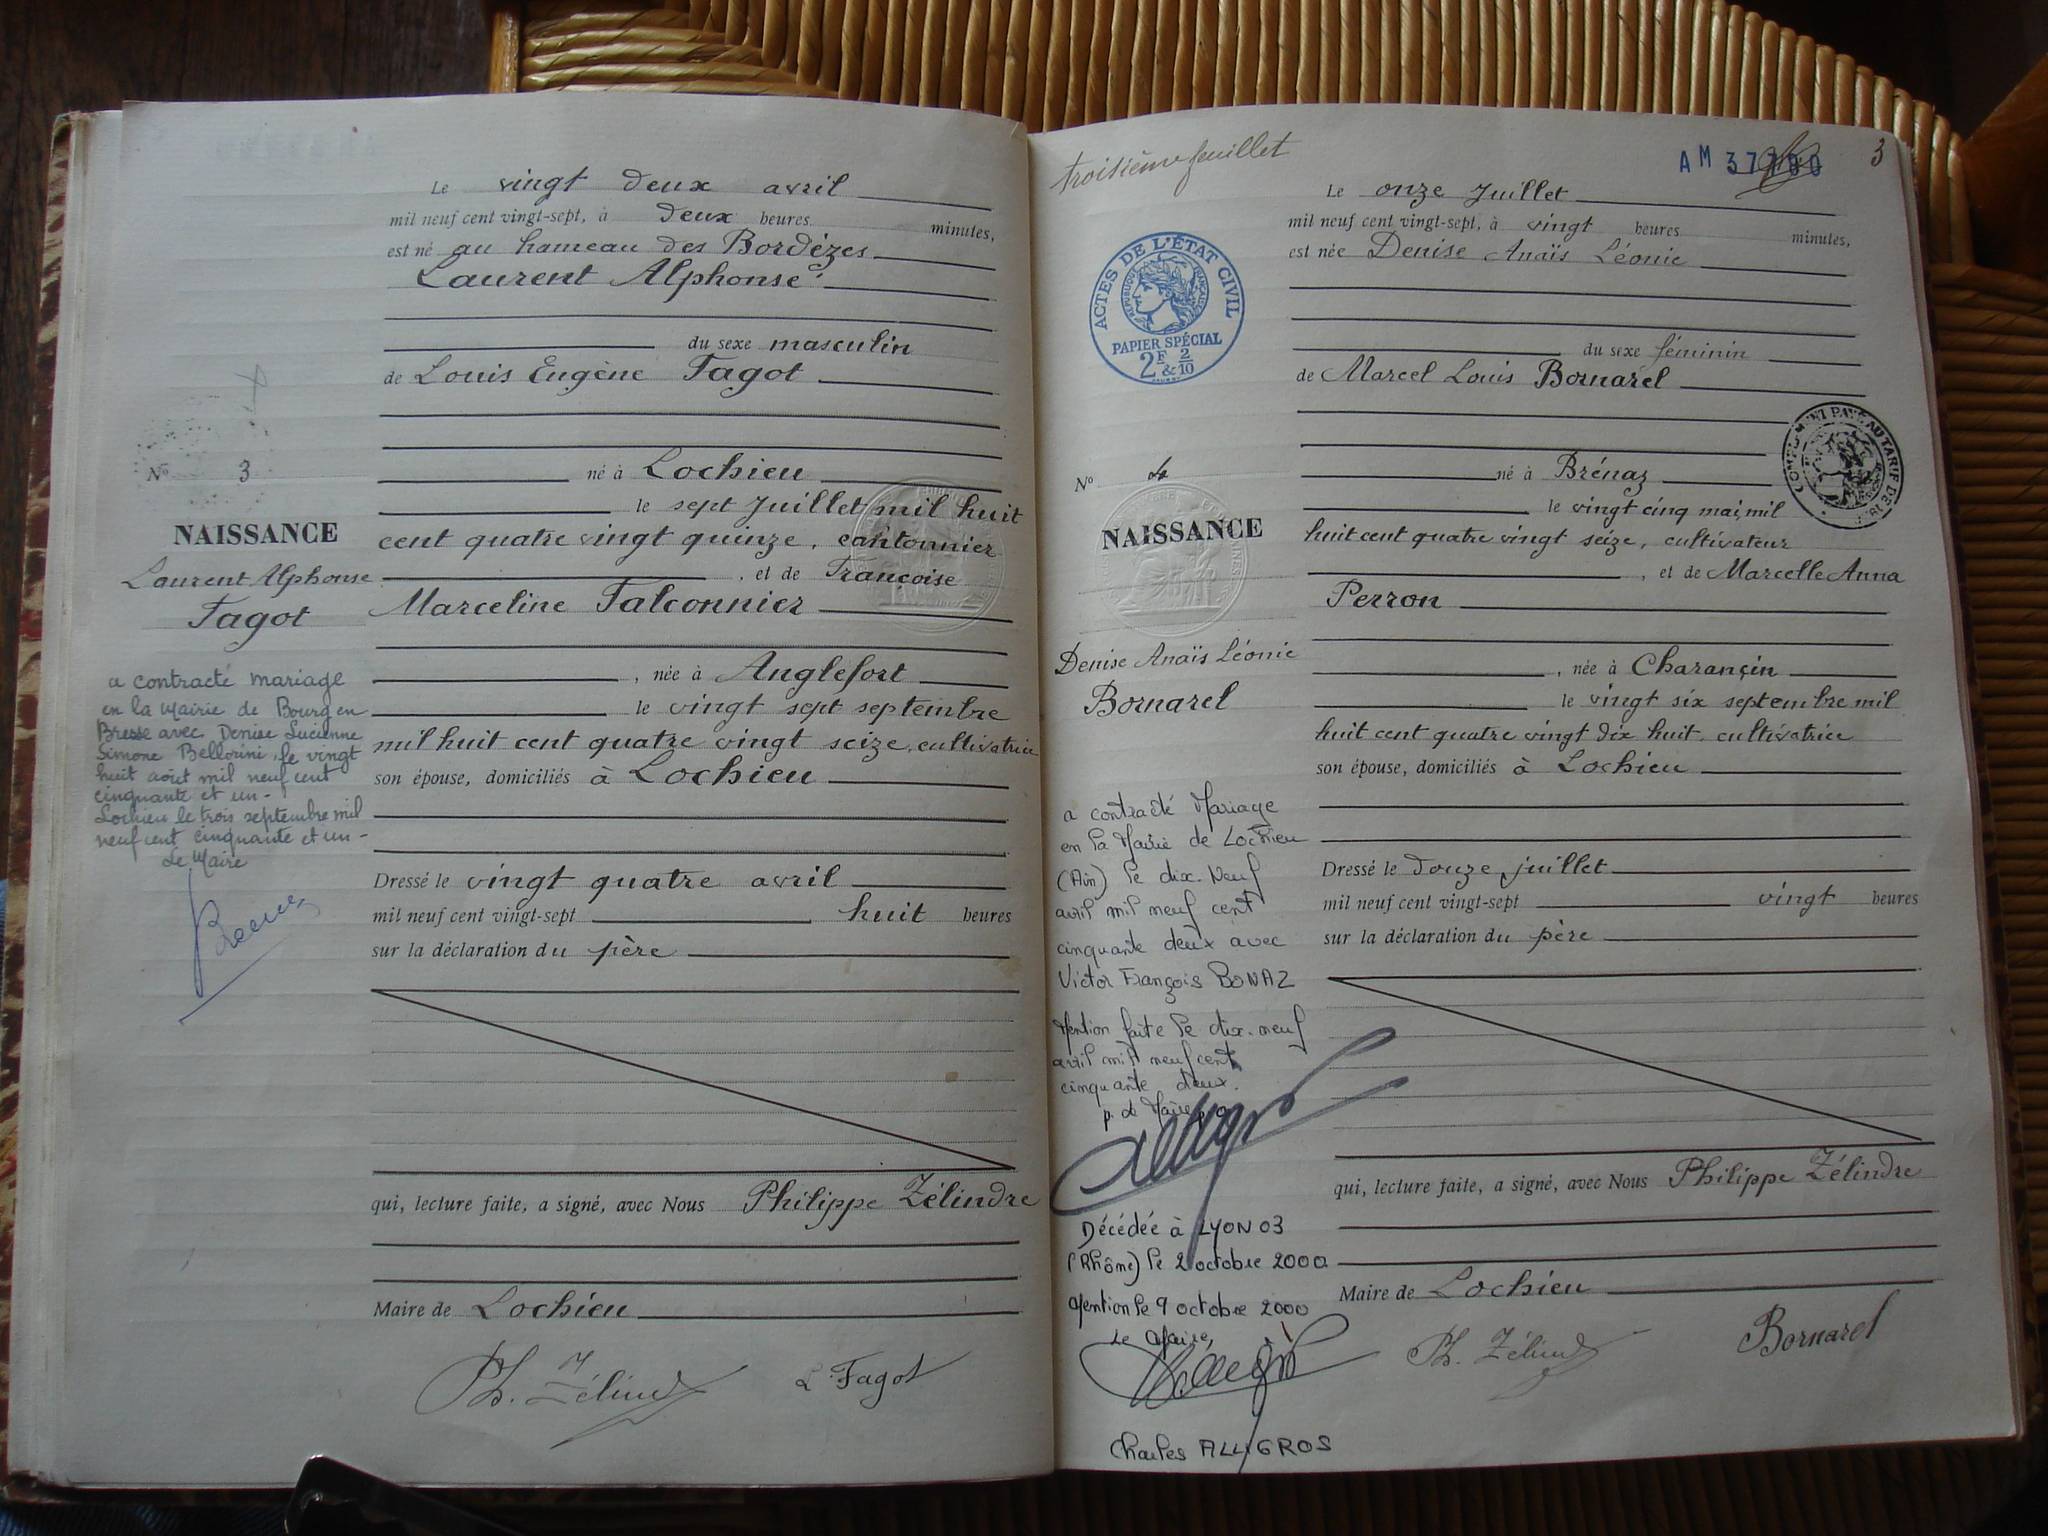 Le vingt deux avril
mil neuf cent vingt-sept, à deux heures minutes,
est né au hameau des Bordèzes
Laurent Alphonse
du sexe masculin
de Louis Eugène Fagot
né à Lochieu
le sept Juillet mil huit
cent quatre vingt quinze, cantonnier
, et de Françoise
Marceline Falconnier
, née à Anglefort
le vingt sept septembre
mil huit cent quatre vingt seize, cultivatrice
son épouse, domiciliés à Lochieu
Dressé le vingt quatre avril
mil neuf cent vingt-sept huit heures
sur la déclaration du père
qui, lecture faite, a signé, avec Nous Philippe Zélindre
Maire de Lochieu
Ph. Zélind
L Fagot
N° 3
NAISSANCE
Laurent Alphonse
Fagot
a contracté mariage
en la Mairie de Bourg en
Bresse avec Denise Lucienne
Simone Bellorini, le vingt
huit août mil neuf cent
cinquante et un-
Lochieu le trois septembre mil
neuf cent cinquante et un-
Le Maire
troisième feuillet
AM 37790
3
Le onze Juillet
mil neuf cent vingt-sept, à vingt heures minutes,
est née Denise Anaïs Léonie
du sexe féminin
de Marcel Louis Bornarel
né à Brénaz
le vingt cinq mai mil
huit cent quatre vingt seize, cultivateur
, et de Marcelle Anna
Perron
, née à Charançin
le vingt six septembre mil
huit cent quatre vingt dix huit, cultivatrice
son épouse, domiciliés à Lochieu
Dressé le douze juillet
mil neuf cent vingt-sept vingt heures
sur la déclaration du père
qui, lecture faite, a signé, avec Nous Philippe Zélindre
Maire de Lochieu
Ph. Zélind
Bornarel
ACTES DE L'ÉTAT CIVIL
RÉPUBLIQUE FRANÇAISE
PAPIER SPÉCIAL
2F & 2/10
COMPLÉMENT PAYÉ AU TARIF DE
N° 4
NAISSANCE
Denise Anaïs Léonie
Bornarel
a contracté Mariage
en la Mairie de Lochieu
(Ain) le dix-Neuf
avril mil neuf cent
cinquante deux avec
Victor François BONAZ
Mention faite le dix-neuf
avril mil neuf cent
cinquante deux.
p. le Maire
Décédée à LYON 03
(Rhône) le 2 octobre 2000
Mention le 9 octobre 2000
Le Maire,
Charles ALLIGROS